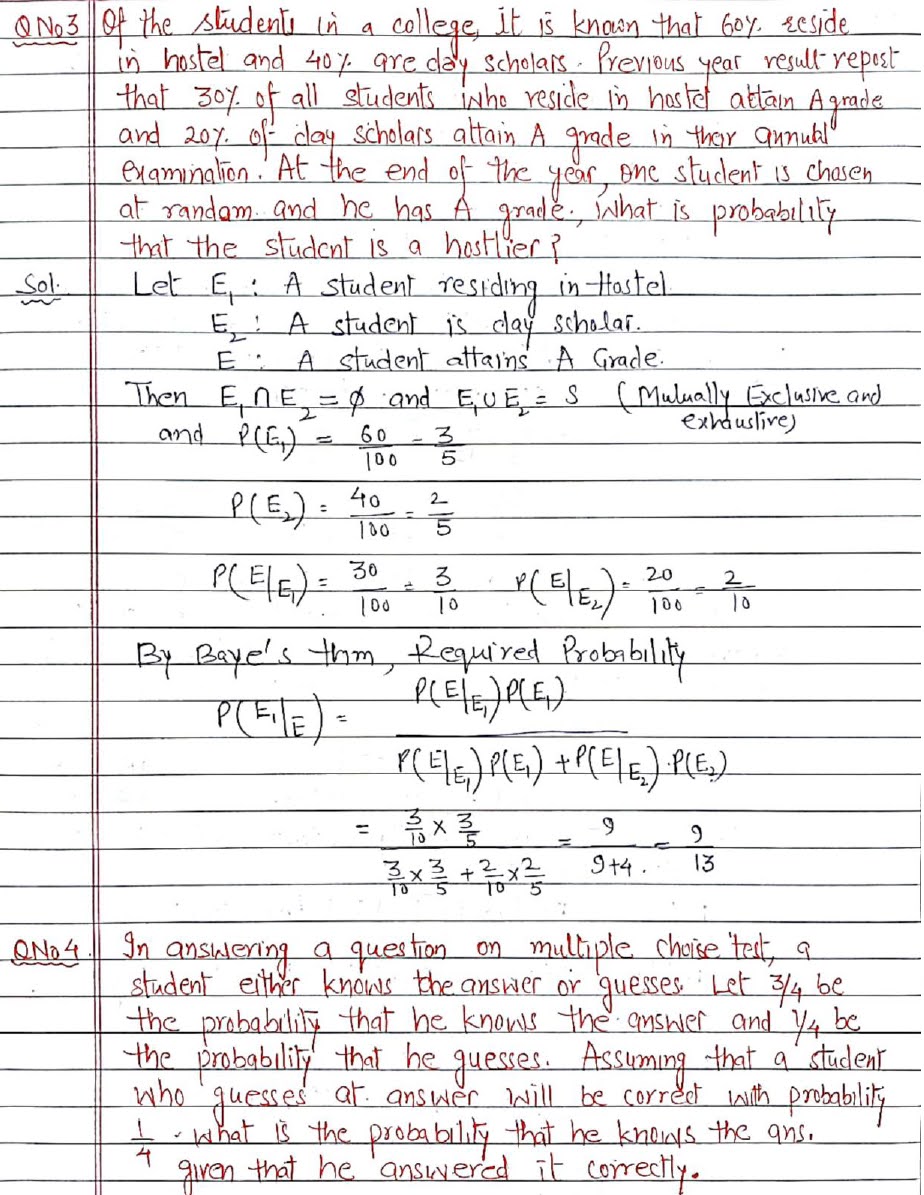 Q No 3 Of the students in a college, it is known that 60% reside
in hostel and 40% are day scholars. Previous year result repost
that 30% of all students who reside in hostel attain A grade
and 20% of day scholars attain A grade in their annual
examination. At the end of the year, one student is chosen
at random and he has A grade, what is probability
that the student is a hostlier?
Sol. Let E₁ : A student residing in Hostel
E₂ : A student is day scholar.
E : A student attains A Grade.
Then E₁ ∩ E₂ = ϕ and E₁ ∪ E₂ = S (Mutually Exclusive and
exhaustive)
and P(E₁) = 60/100 = 3/5
P(E₂) = 40/100 = 2/5
P(E|E₁) = 30/100 = 3/10 P(E|E₂) = 20/100 = 2/10
By Baye's thm, Required Probability
P(E₁|E) = P(E|E₁) P(E₁) / P(E|E₁) P(E₁) + P(E|E₂) · P(E₂)
= 3/10 × 3/5 / 3/10 × 3/5 + 2/10 × 2/5 = 9/9+4 . = 9/13
Q No 4. In answering a question on multiple choise test, a
student either knows the answer or guesses. Let 3/4 be
the probability that he knows the answer and 1/4 be
the probability that he guesses. Assuming that a student
who guesses at answer will be correct with probability
1/4 . what is the probability that he knows the ans.
given that he answered it correctly.